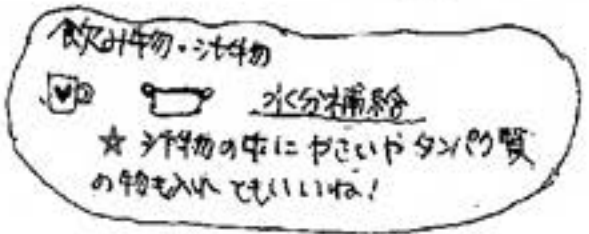 飲み物・汁物
水分補給
☆ 汁物の中に やさいや タンパク質
の物も入れてもいいね!